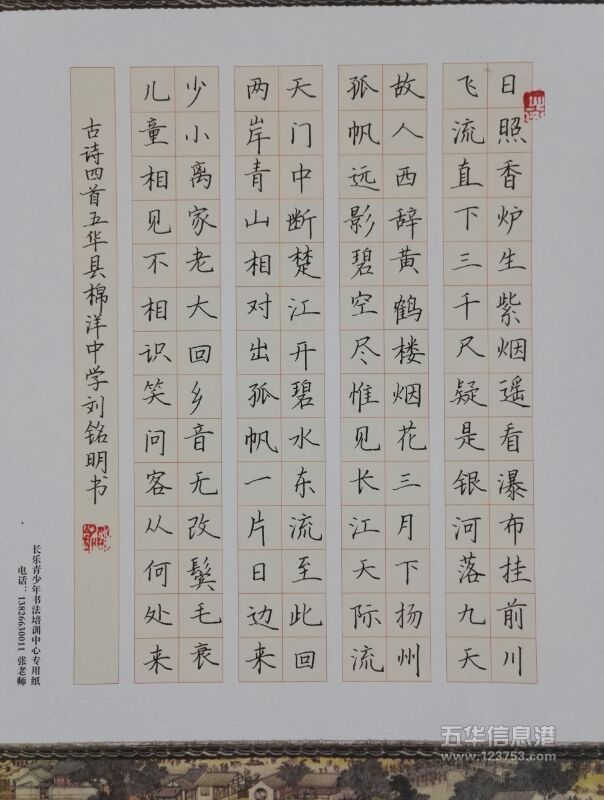 日照香炉生紫烟遥看瀑布挂前川
飞流直下三千尺疑是银河落九天
故人西辞黄鹤楼烟花三月下扬州
孤帆远影碧空尽惟见长江天际流
天门中断楚江开碧水东流至此回
两岸青山相对出孤帆一片日边来
少小离家老大回乡音无改鬓毛衰
儿童相见不相识笑问客从何处来
古诗四首五华县棉洋中学刘铭明书
长乐青少年书法培训中心专用纸
电话：13826630011 张老师
五华信息港
www.123753.com